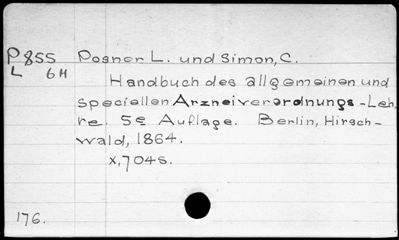 P855 Posner L. und Simon, C.
L 6H
Handbuch des allgemeinen und
speciellen Arzneiverordnungs-Leh,
re. 5e Auflage. Berlin, Hirsch-
wald, 1864.
x,704s.
176.